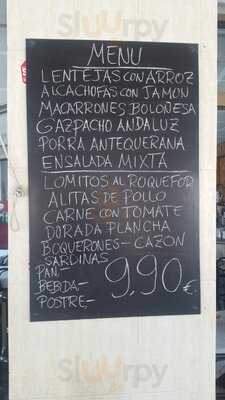 Sluurpy
MENU
LENTEJAS CON ARROZ
ALCACHOFAS CON JAMON
MACARRONES BOLOÑESA
GAZPACHO ANDALUZ
PORRA ANTEQUERANA
ENSALADA MIXTA
LOMITOS AL ROQUEFOR
ALITAS DE POLLO
CARNE CON TOMATE
DORADA PLANCHA
BOQUERONES - CAZON
SARDINAS
PAN.-
BEBIDA-
POSTRE.-
9,90 €
Sluurpy